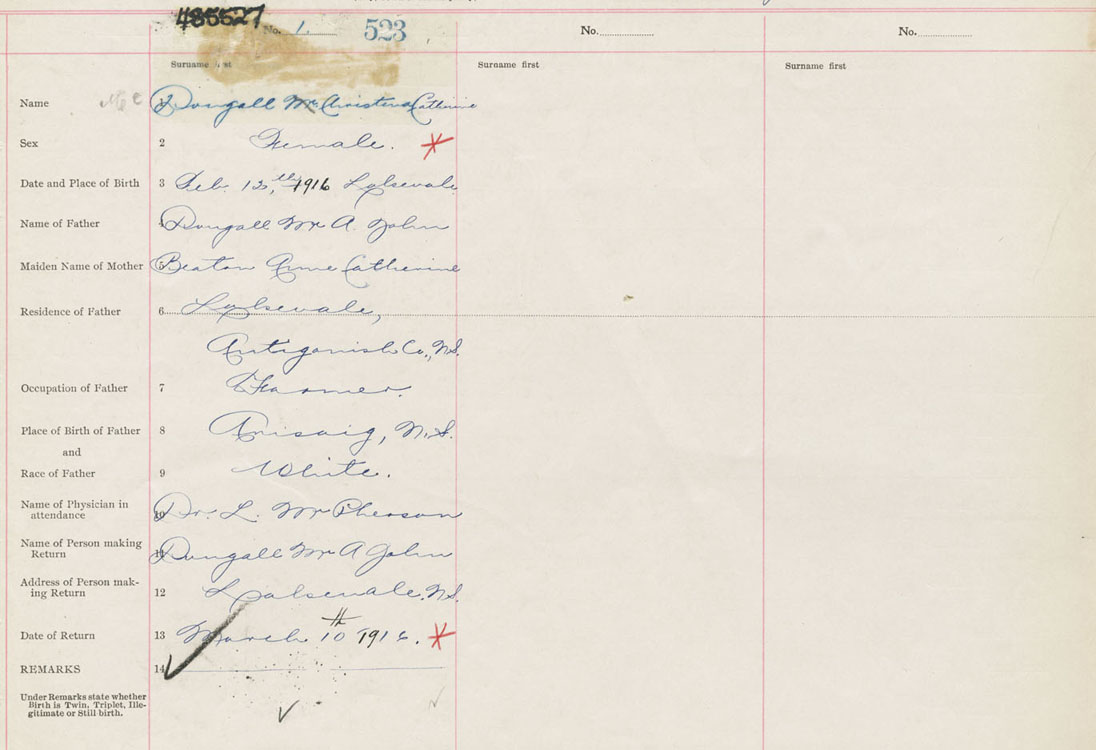 485527
No. 1. 523
No.
No.
Surname first
Surname first
Surname first
Name 1 Dougall Mc Christena Catherine
Sex 2 Female.
Date and Place of Birth 3 Feb. 12,th 1916
Name of Father 4 Dougall Mc A. John
Maiden Name of Mother 5 Beaton Anne Catherine
Residence of Father 6
Antigonish Co., N.S.
Occupation of Father 7 Farmer.
Place of Birth of Father 8 Arisaig, N.S.
and
Race of Father 9 White.
Name of Physician in
attendance 10 Dr. L. McPherson
Name of Person making
Return 11 Dougall Mc A John
Address of Person mak-
ing Return 12 N.S.
Date of Return 13 March 10th 1916.
REMARKS 14
Under Remarks state whether
Birth is Twin, Triplet, Ille-
gitimate or Still birth.